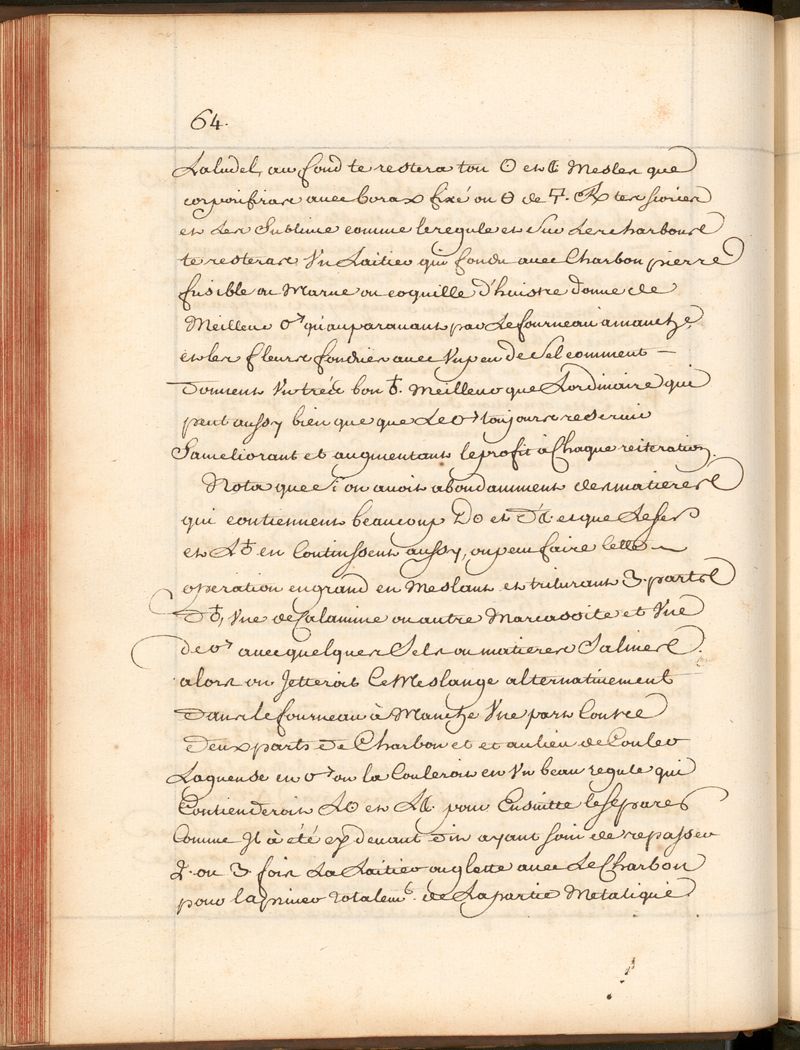 64.
Laludel, au fond te restera ton ☉ et ☾ Mesler que
corporifiras avec borax fixé ou 🜔 de 🜿. ℞ tes scories
et Les Sublime comme le regule et sur Les charbons
te resteras Un Laitier qui fondu avec Charbon pierre
fusible ou Marne ou coquille d'huistre donne de
Meilleur ♂ qu'auparavant par Le fourneau a manche
et les fleurs fondries avec Un peu de Sel comment —
donnent Un trés bon ♁. Meilleur que Lordinaire qui
peut aussy bien que que Le ♂ toujours reservir
Sameliorant et augmentant le profit à Chaque reiteration.
Nota que si on avoit abondamment des matieres
qui contiennent beaucoup D☉ et D☾. et que Le fer
et L♁ en Continssent aussy, on peu faire Cette —
operation en grand en Meslant et triturant 3. parts
D♁, Une de Calamine ou autre Marcassite et Une
de ♂ avec quelques Sels ou matieres Salines.
alors on Jetteroit Ce Meslange alternativement
dans le fourneau à Manche Une part Contre
deux parts de Charbon et et au lieu de Couler
La gueuse en ♂ on la Couleroit en Un beau regule qui
Contiendroit L☉ et L☾. pour Ensuitte le Separer
Comme Jl à été cy devant dit ayant soin de repasser
2. ou 3 fois La Laitier ou glette avec Le Charbon
pour la priver totalemt. de La partie Metalique